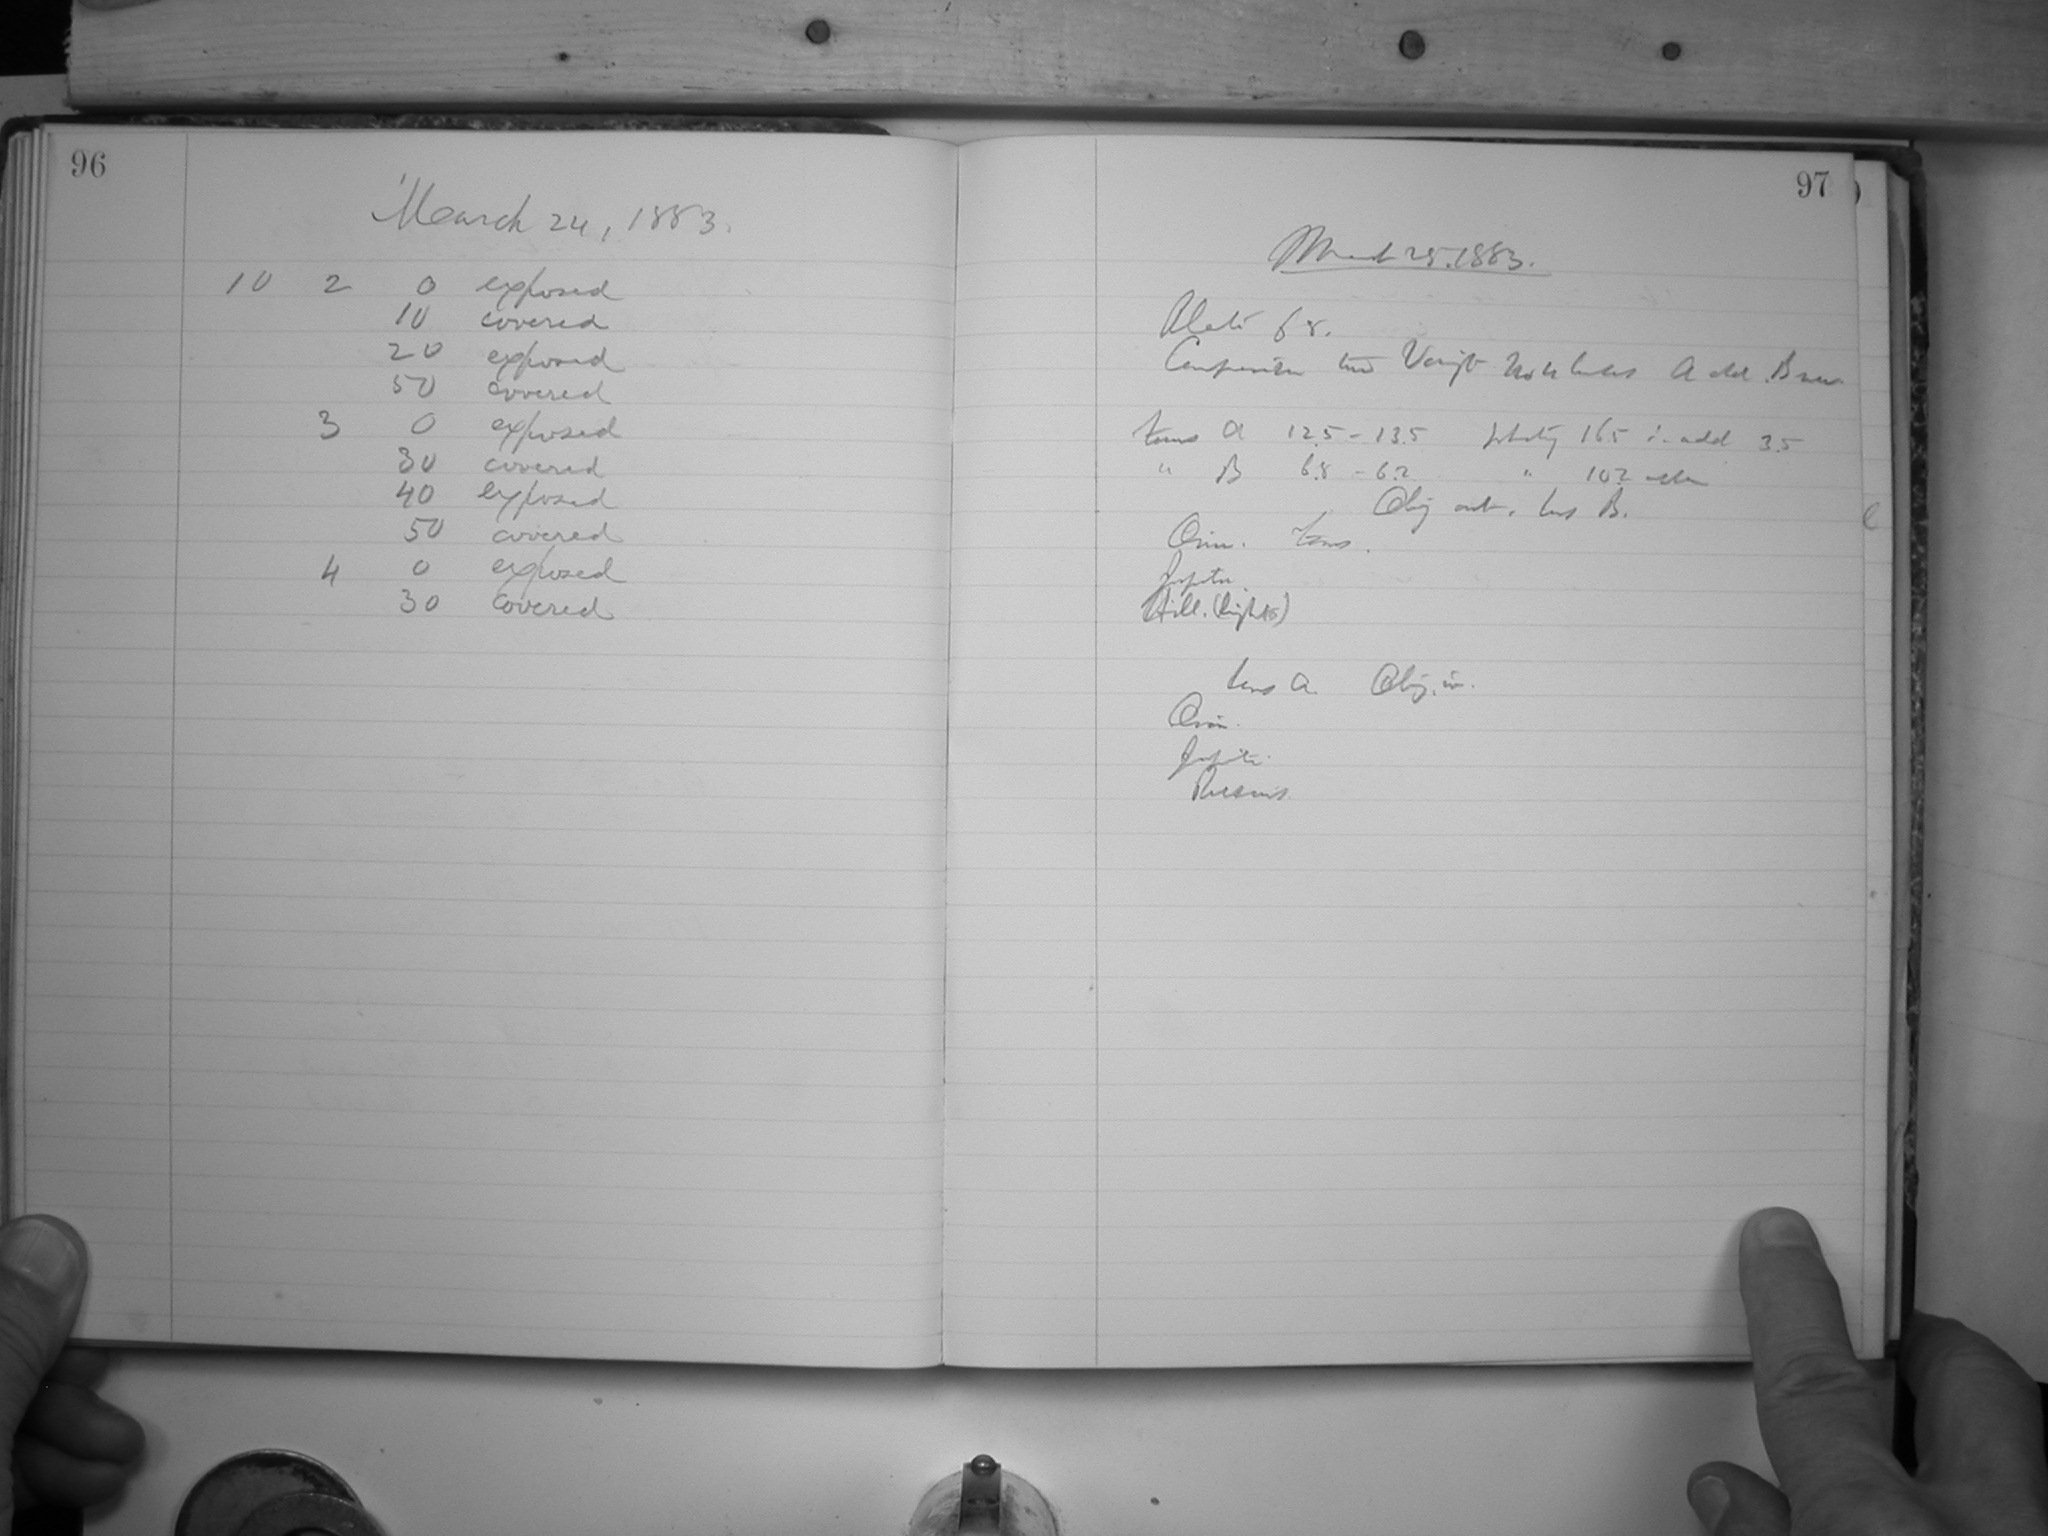 96
March 24, 1883.
10 2 0 exposed
10 covered
20 exposed
50 covered
3 0 exposed
30 covered
40 exposed
50 covered
4 0 exposed
30 covered
97
March 25, 1883.
Plate 68.
Comparison two Voigt lenses A old B new
A 12.5 - 13.5 photog 16.5 ∴ add 3.5
" B 6.8 - 6.2 " 10.2
Obj out. lens B.
Orion.
Jupiter
Hill. (lights)
lens A. Obj. in.
Orion.
Jupiter.